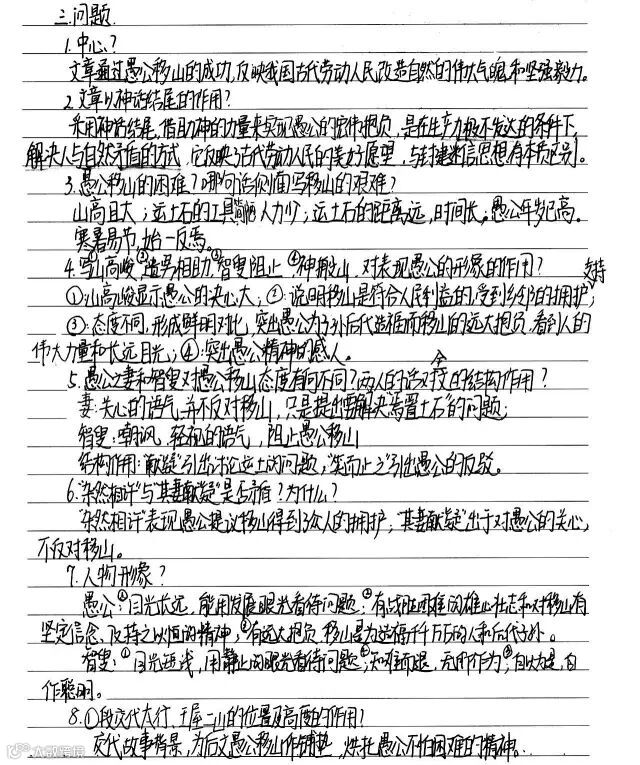 三.问题
1.中心?
文章通过愚公移山的成功,反映我国古代劳动人民改造自然的伟大气魄和坚强毅力。
2.文章以神话结尾的作用?
采用神话结尾,借助神的力量来实现愚公的宏伟抱负,是在生产力极不发达的条件下,
解决人与自然矛盾的方式,它反映了古代劳动人民的美好愿望,与封建迷信思想有本质区别。
3.愚公移山的困难?哪句话侧面写移山的艰难?
山高且大;运土石的工具简陋人力少;运土石的距离远,时间长;愚公年岁已高。
寒暑易节,始一反焉。
4.写①山高峻,②遗男相助,③智叟阻止,④神搬山,对表现愚公的形象的作用?
①:山高峻显示愚公的决心大;②:说明移山是符合人民利益的,受到乡邻的拥护,支持
③:态度不同,形成鲜明对比,突出愚公为子孙后代造福而移山的远大抱负,看到人的
伟大力量和长远目光;④:突出愚公精神的感人。
5.愚公之妻和智叟对愚公移山态度有何不同?两人的话对全文的结构作用?
妻:关心的语气,并不反对移山,只是提出要解决“焉置土石”的问题;
智叟:嘲讽,轻视的语气,阻止愚公移山
结构作用:“献疑”引出讨论运土的问题,“笑而止之”引出愚公的反驳。
6.“杂然相许”与“其妻献疑”是否矛盾?为什么?
“杂然相许”表现愚公提议移山得到众人的拥护,“其妻献疑”出于对愚公的关心,
不反对移山。
7.人物形象?
愚公:①目光长远,能用发展眼光看待问题;②有战胜困难的雄心壮志和对移山有
坚定信念,及持之以恒的精神;③有远大抱负,移山是为造福千千万万的人和后代子孙。
智叟:①目光短浅,用静止的眼光看待问题;②知难而退,无所作为;③自以为是,自
作聪明。
8.①段交代太行、王屋二山的位置及高度的作用?
交代故事背景,为后文愚公移山作铺垫,烘托愚公不怕困难的精神。